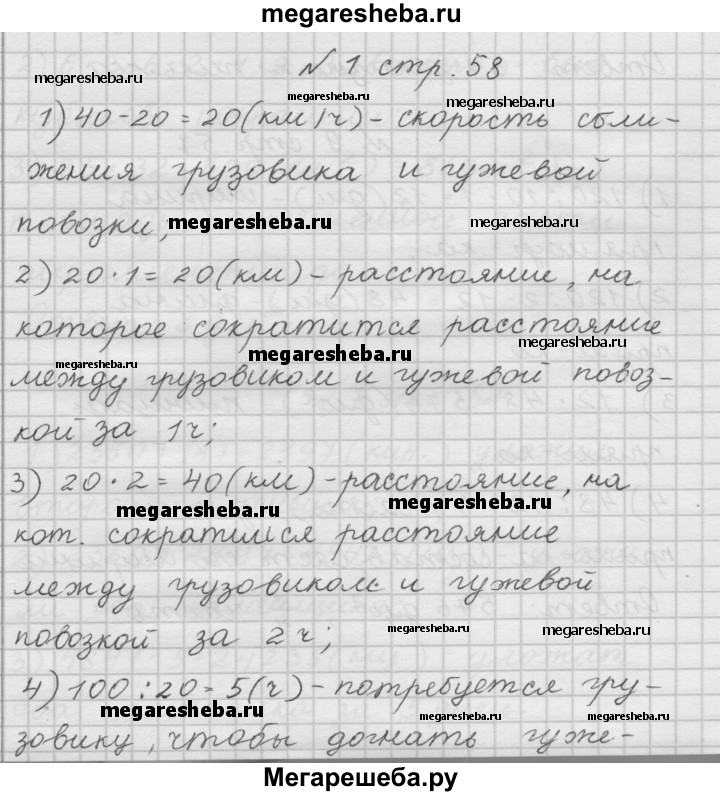 megaresheba.ru
№ 1 стр. 58
megaresheba.ru
megaresheba.ru
megaresheba.ru
1) 40-20 = 20(км/ч) - скорость сбли-
жения грузовика и гужевой
повозки; megaresheba.ru megaresheba.ru
2) 20·1 = 20(км) - расстояние, на
которое сократится расстояние
megaresheba.ru megaresheba.ru megaresheba.ru
между грузовиком и гужевой повоз-
кой за 1ч;
3) 20·2 = 40(км) - расстояние, на
megaresheba.ru megaresheba.ru
кот. сократится расстояние
между грузовиком и гужевой
повозкой за 2ч; megaresheba.ru megaresheba.ru
4) 100:20 = 5(ч) - потребуется гру-
megaresheba.ru megaresheba.ru megaresheba.ru
зовику, чтобы догнать гуже-
Мегарешеба.ру